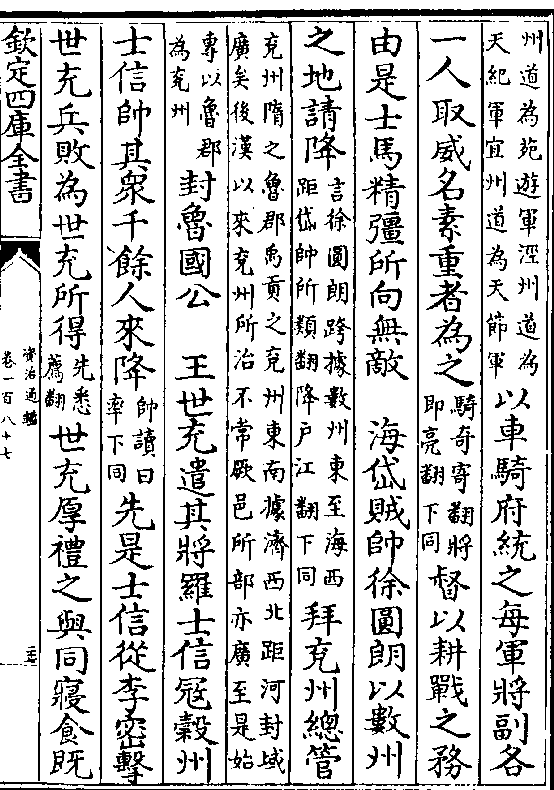 州道為苑遊軍涇州道為
天紀軍宜州道為天節軍
以車騎府統之每軍將副各
一人取威名素重者為之
騎奇寄翻將
即亮翻下同
督以耕戰之務
由是士馬精彊所向無敵　海岱賊帥徐圓朗以數州
之地請降
言徐圓朗跨據數州東至海西
距岱帥所類翻降户江翻下同
拜兗州總管
兗州隋之魯郡禹貢之兗州東南據濟西北距河封域
廣矣後漢以來兗州所治不常厥邑所部亦廣至是始
專以魯郡
為兗州
封魯國公　王世充遣其將羅士信寇穀州
士信帥其衆千餘人來降
帥讀曰
率下同
先是士信從李密擊
世充兵敗為世充所得
先悉
薦翻
世充厚禮之與同寢食既
欽定四庫全書
資治通鑑
卷一百八十七